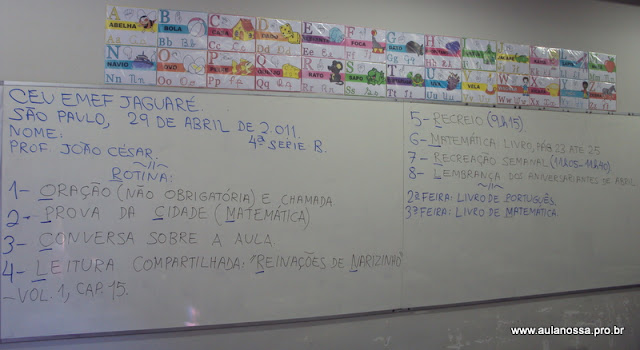 ABELHA
BOLA
FOCA
NAVIO
RATO
SAPO
UVA
VELA
CEU EMEF JAGUARÉ.
SÃO PAULO, 29 DE ABRIL DE 2.011.
NOME: 4ª SÉRIE B.
PROF. JOÃO CÉSAR.
ROTINA:
1- ORAÇÃO (NÃO OBRIGATÓRIA) E CHAMADA
2- PROVA DA CIDADE (MATEMÁTICA)
3- CONVERSA SOBRE A AULA.
4- LEITURA COMPARTILHADA: "REINAÇÕES DE NARIZINHO"
-VOL. 1, CAP. 15.
5- RECREIO (9h15)
6- MATEMÁTICA: LIVRO, PÁG 23 ATÉ 25
7- RECREAÇÃO SEMANAL (11h05-11h40)
8- LEMBRANÇA DOS ANIVERSARIANTES DE ABRIL
2ª FEIRA: LIVRO DE PORTUGUÊS.
3ª FEIRA: LIVRO DE MATEMÁTICA.
www.aulanossa.pro.br